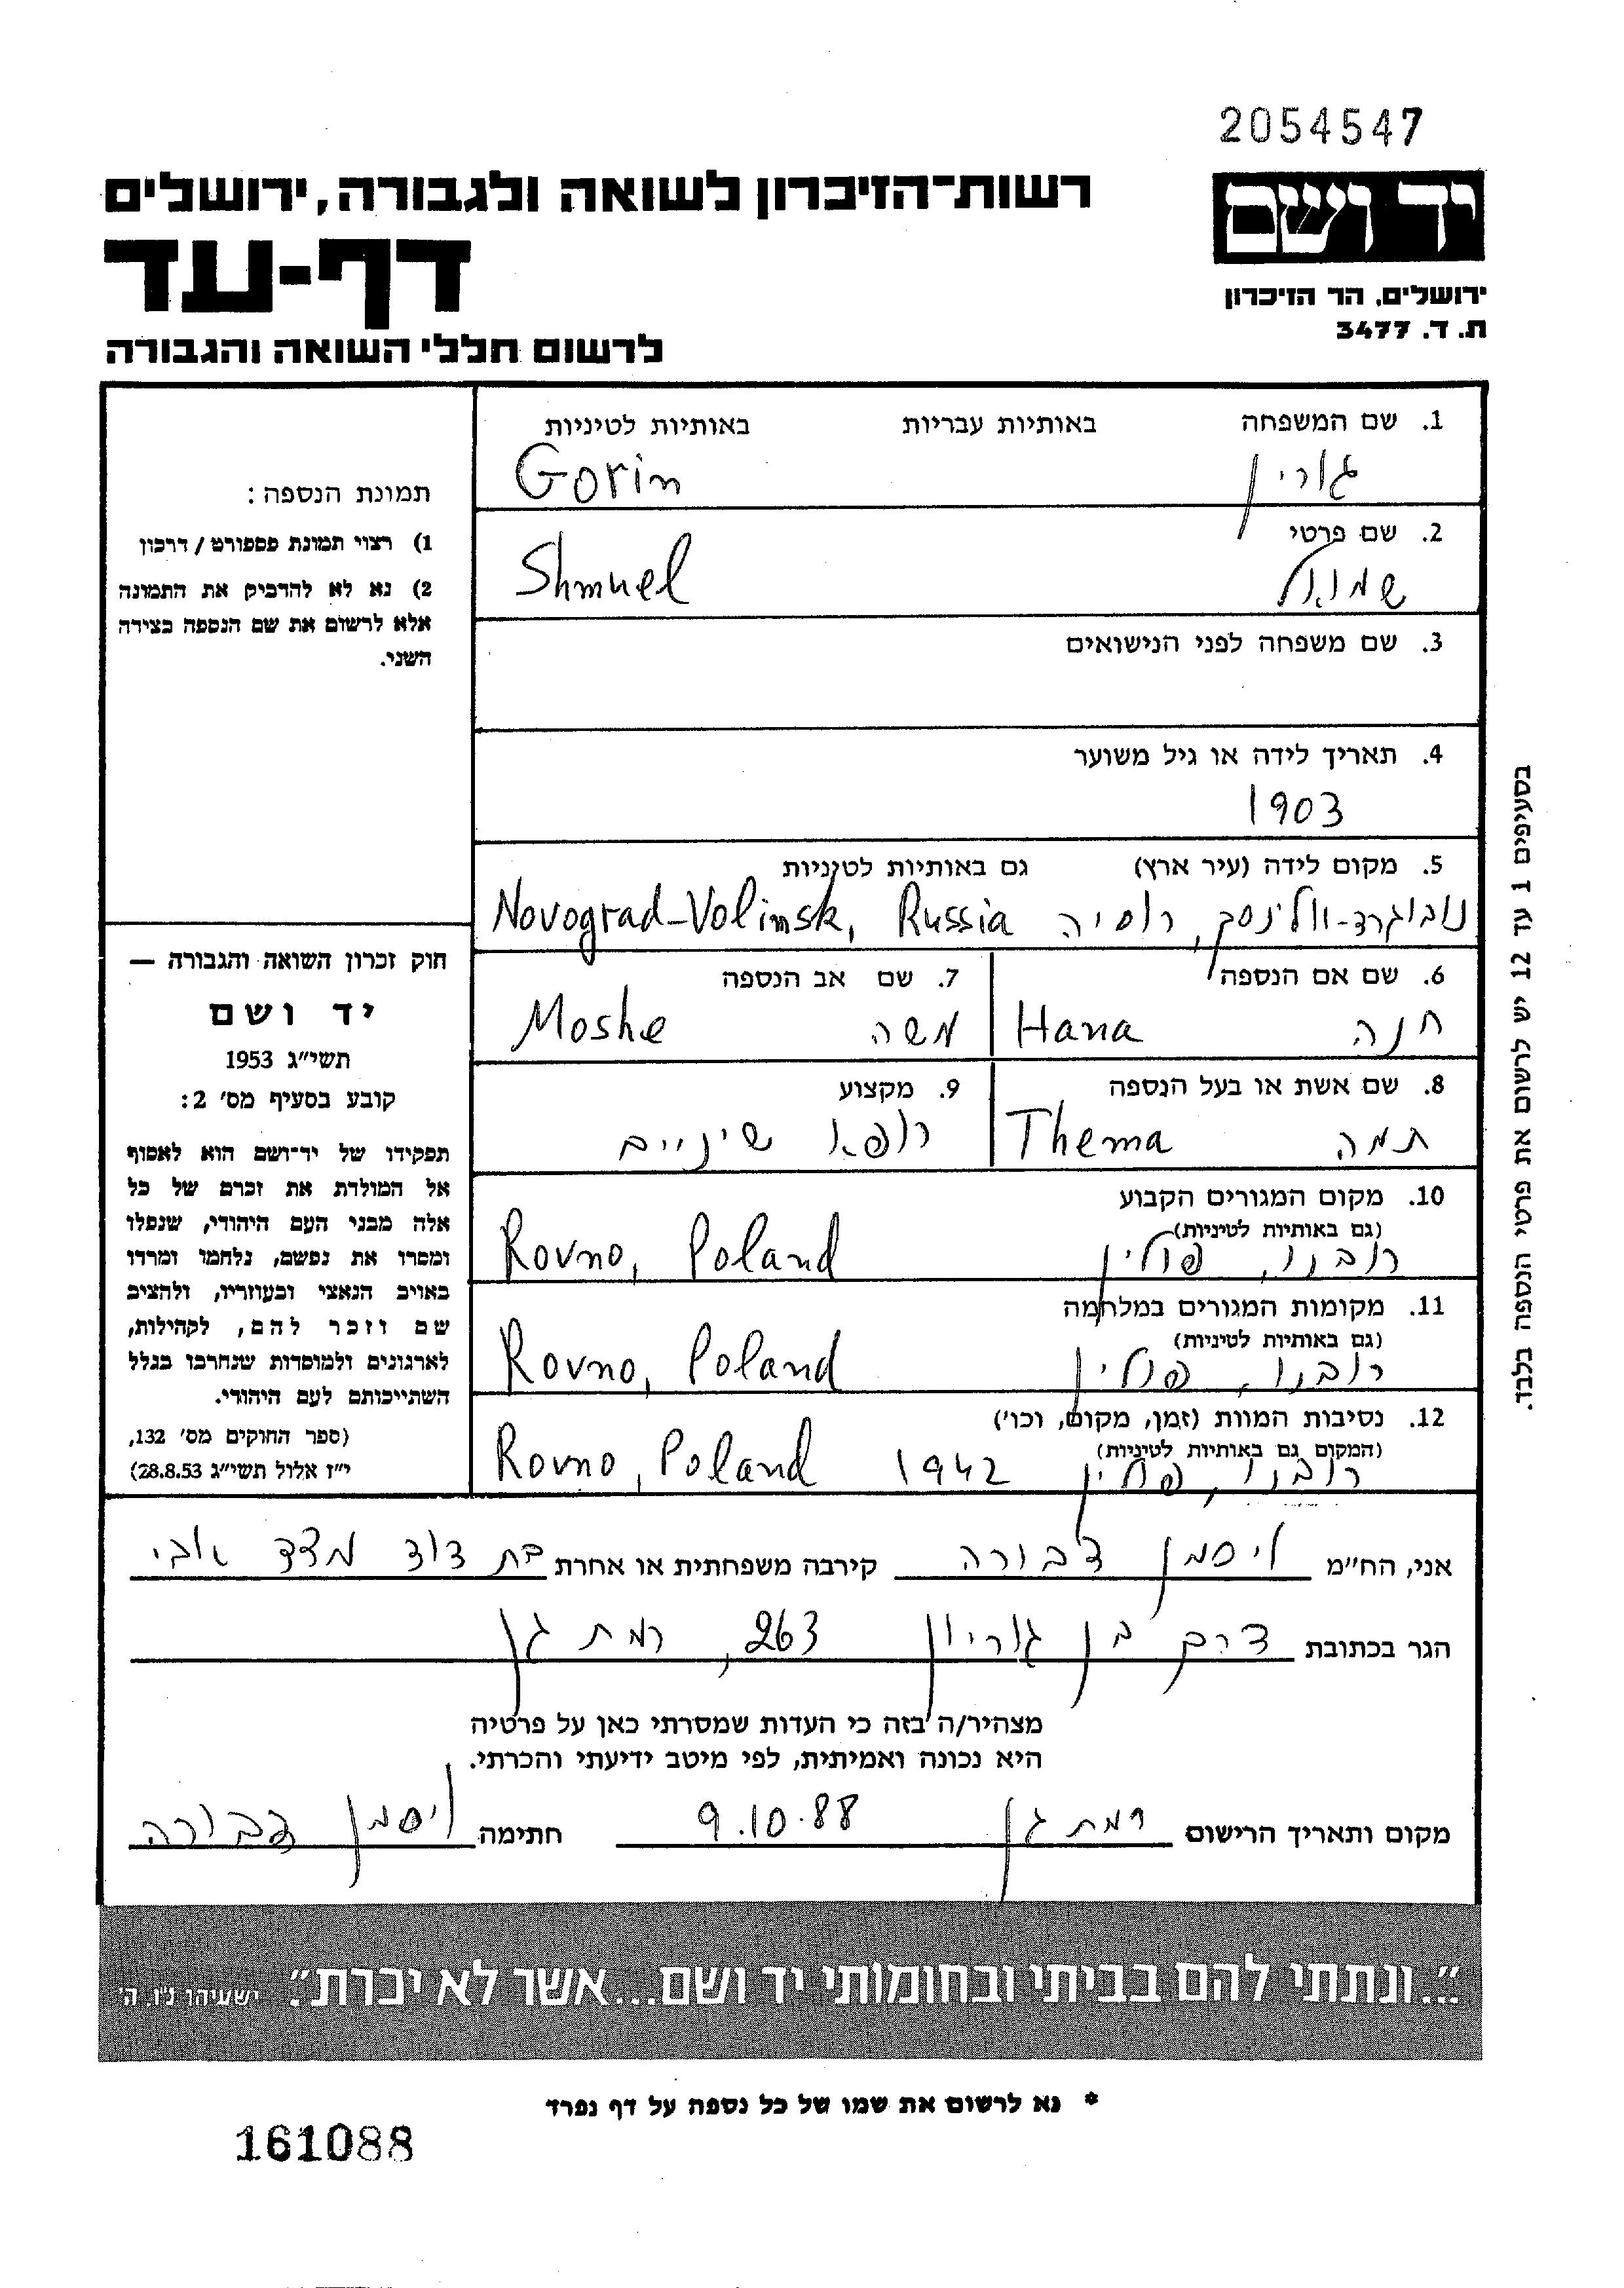 2054547
רשות־הזיכרון לשואה ולגבורה, ירושלים
יד ושם
דף-עד
ירושלים, הר הזיכרון
ת. ד. 3477
לרשום חללי השואה והגבורה
1. שם המשפחה באותיות עבריות באותיות לטיניות
גורין Gorin
2. שם פרטי
שמואל Shmuel
3. שם משפחה לפני הנישואים
4. תאריך לידה או גיל משוער
1903
5. מקום לידה (עיר ארץ) גם באותיות לטיניות
נובוגרד-וולינסק, רוסיה Novograd-Volinsk, Russia
6. שם אם הנספה
חנה Hana
7. שם אב הנספה
משה Moshe
8. שם אשת או בעל הנספה
תמה Thema
9. מקצוע
רופא שיניים
10. מקום המגורים הקבוע
(גם באותיות לטיניות)
רובנו, פולין Rovno, Poland
11. מקומות המגורים במלחמה
(גם באותיות לטיניות)
רובנו, פולין Rovno, Poland
12. נסיבות המוות (זמן, מקום, וכו')
(המקום גם באותיות לטיניות)
רובנו, פולין 1942 Rovno, Poland
תמונת הנספה:
1) רצוי תמונת פספורט / דרכון
2) נא לא להדביק את התמונה
אלא לרשום את שם הנספה בצידה
השני.
חוק זכרון השואה והגבורה —
יד ושם
תשי״ג 1953
קובע בסעיף מס׳ 2:
תפקידו של יד־ושם הוא לאסוף
אל המולדת את זכרם של כל
אלה מבני העם היהודי, שנפלו
ומסרו את נפשם, נלחמו ומרדו
באויב הנאצי ובעוזריו, ולהציב
שם וזכר להם, לקהילות,
לארגונים ולמוסדות שנחרבו בגלל
השתייכותם לעם היהודי.
(ספר החוקים מס׳ 132,
י״ז אלול תשי״ג 28.8.53)
בסעיפים 1 עד 12 יש לרשום את פרטי הנספה בלבד.
אני, הח״מ ויסמן דבורה קירבה משפחתית או אחרת בת דוד מצד אבי
הגר בכתובת דרך בן גוריון 263, רמת גן
מצהיר/ה בזה כי העדות שמסרתי כאן על פרטיה
היא נכונה ואמיתית, לפי מיטב ידיעתי והכרתי.
מקום ותאריך הרישום רמת גן 9.10.88 חתימה ויסמן דבורה
״...ונתתי להם בביתי ובחומותי יד ושם...אשר לא יכרת״. ישעיהו נ״ו, ה׳
* נא לרשום את שמו של כל נספה על דף נפרד
161088